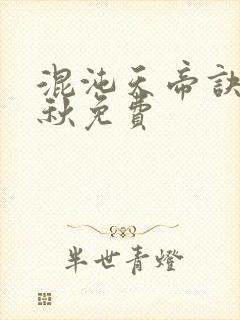 混沌天帝訣
秋免費
半世青燈